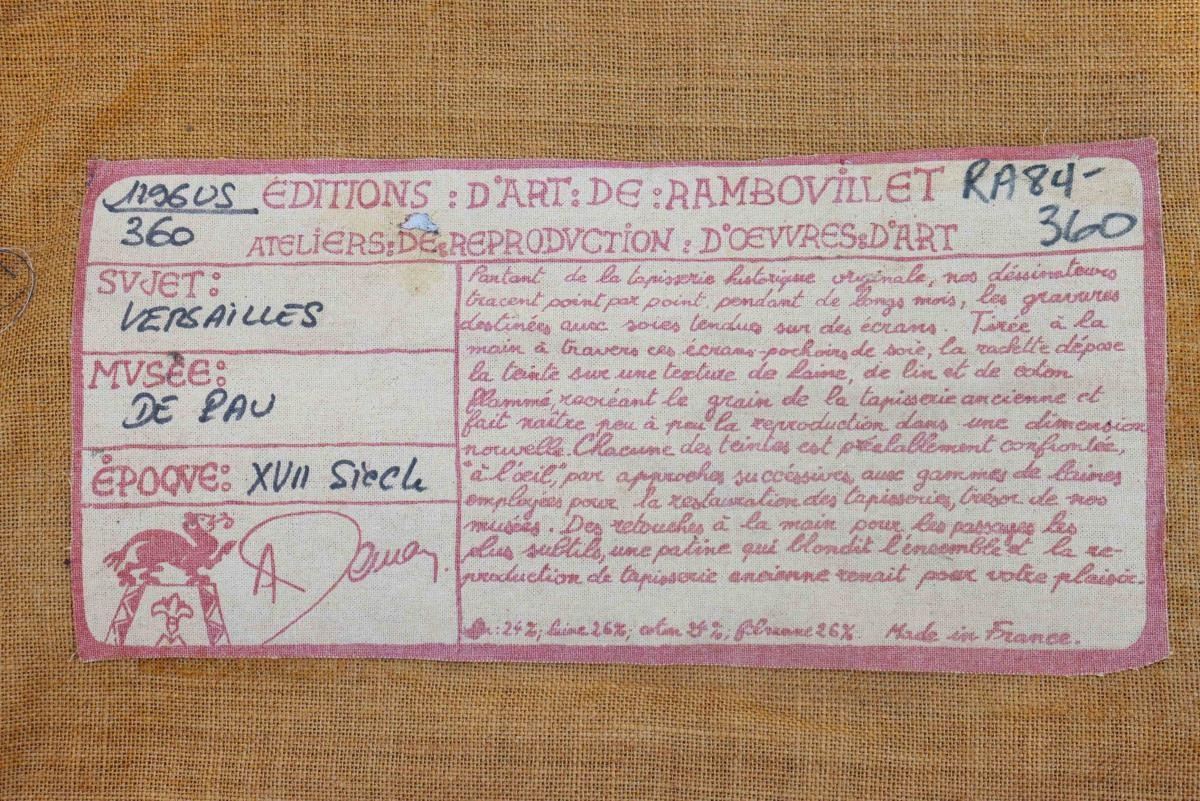 1296US
360
ÉDITIONS : D'ART : DE : RAMBOVILLET
RA84-
360
ATELIERS : DE : REPRODVCTION : D'OEVVRES : D'ART
SVJET :
VERSAILLES
MVSÉE :
DE PAU
ÉPOQVE : XVII Siecle
Partant de la tapisserie historique originale, nos déssinateurs
tracent point par point, pendant de longs mois, les gravures
destinées aux soies tendues sur des écrans. Tirée à la
main à travers ces écrans-pochoirs de soie, la raclette dépose
la teinte sur une texture de laine, de lin et de coton
flammé, recréant le grain de la tapisserie ancienne et
fait naître peu à peu la reproduction dans une dimension
nouvelle. Chacune des teintes est préalablement confrontée,
"à l'œil", par approches succéssives, aux gammes de laines
employées pour la restauration des tapisseries, trésor de nos
musées. Des retouches à la main pour les passages les
plus subtils, une patine qui blondit l'ensemble et la re-
production de tapisserie ancienne renait pour votre plaisir.
24%; laine 26%; coton %; fibranne 26% Made in France.